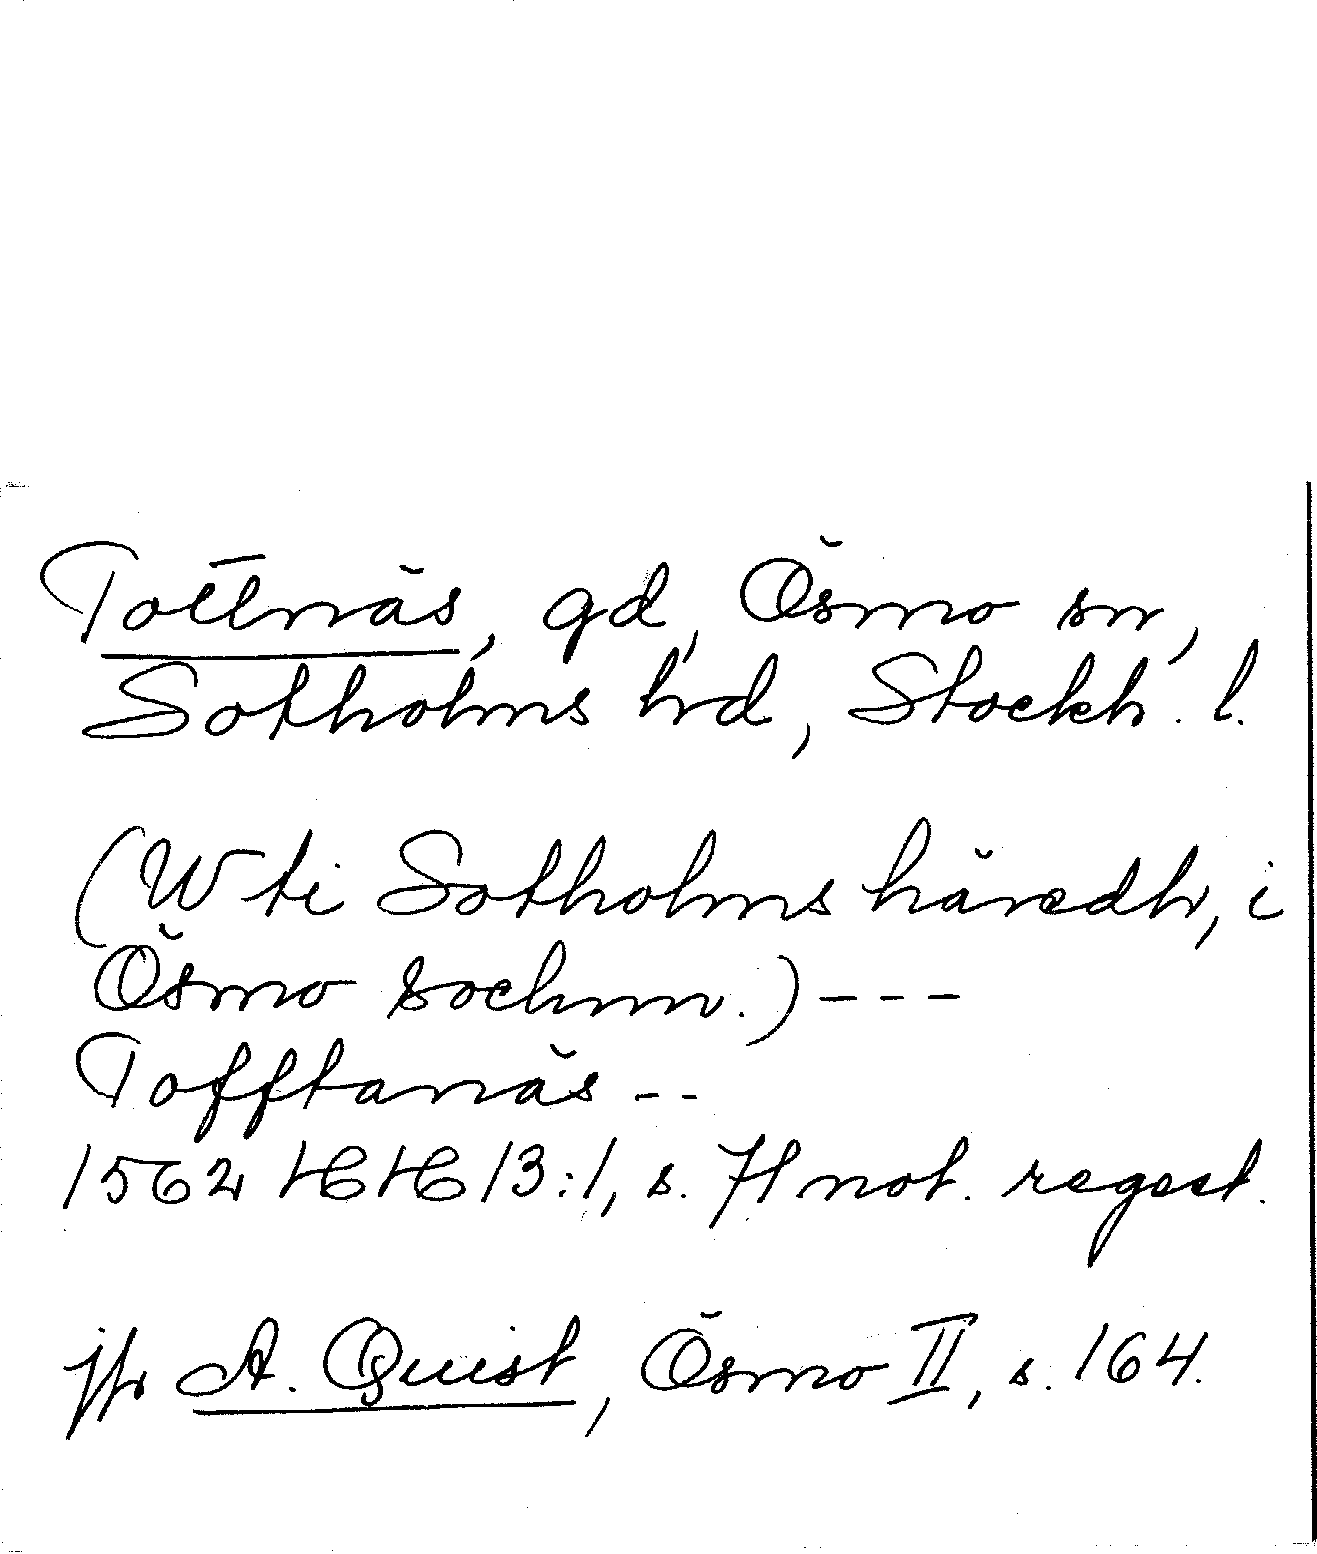 Tottnäs, gd, Ösmo sn,
Sotholms hrd, Stockh. l.
(W ti Sotholms häredh, i
Ösmo sochnn.) ---
Tofftanäs --
1562 HH 13:1, s. 71 not. regest.
jfr A. Quist, Ösmo II, s. 164.